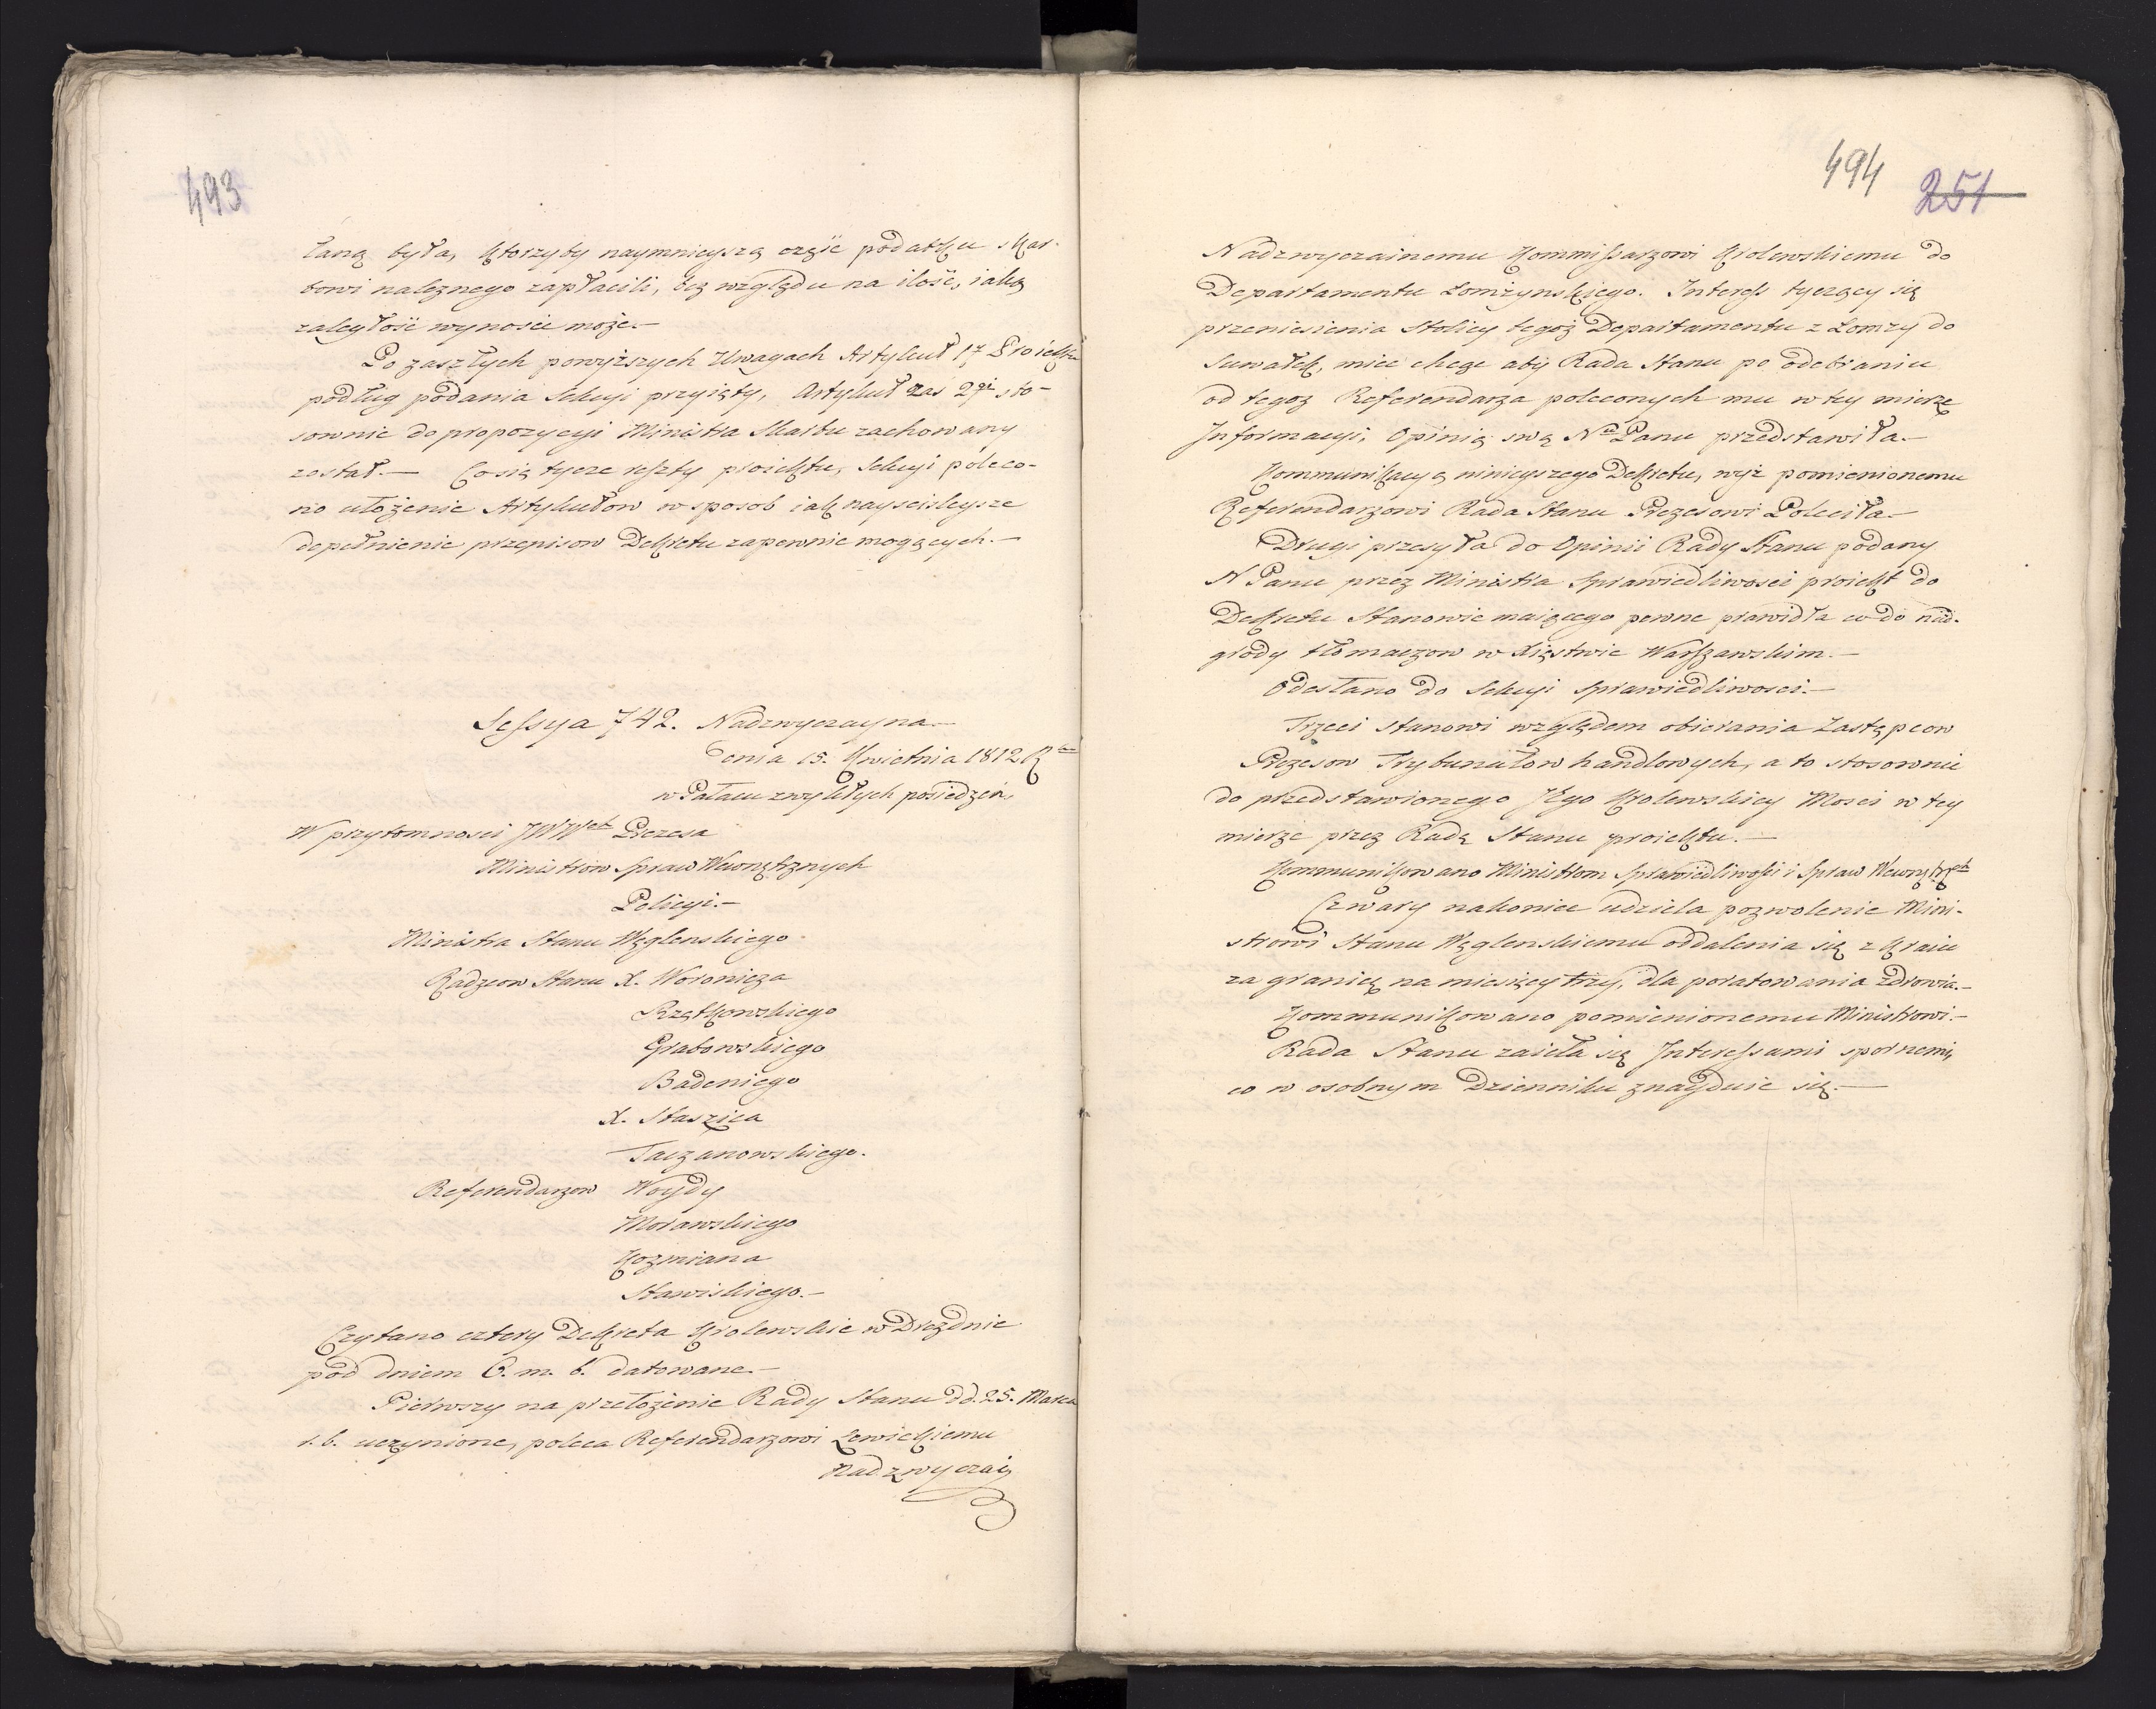 493
łaną była, ktorzyby naymnieyszą część podatku skar-
bowi należnego zapłacili, bez względu na ilość, iaką
zaległość wynosić może.-
Po zaszłych powyższych Uwagach Artykuł 17 Proiektu
podług podania Sekcyi przyięty, Artykuł zas 29i sto-
sownie do propozycyi Ministra Skarbu zachowany
został.- Co się tycze reszty proiektu, Sekcyi poleco-
no ułożenie Artykułow w sposob iak nayscisleysze
dopełnienie przepisow Dekretu zapewnic mogących.-
Sessya 742. Nadzwyczayna-
Dnia 15. Kwietnia 1812 R
w Pałacu zwykłych posiedzeń,
W przytomnosci JWWch Prezesa
Ministrow Spraw Wewnętrznych
Policyi.-
Ministra Stanu Węglenskiego.
Radzcow Stanu X. Woronicza
Rzętkowskiego
Grabowskiego
Badeniego
X. Staszica
Taczanowskiego.
Referendarzow Woydy
Morawskiego
Kozmiana
Stawiskiego.-
Czytano cztery Dekreta Krolewskie w Dreznie
pod dniem 6. m. b. datowane.-
Pierwszy na przełożenie Rady Stanu dd. 25. Marca
r. b. uczynione, poleca Referendarzowi Lewickiemu
Nadzwyczai,
494 251
Nadzwyczainemu Kommissarzowi Krolewskiemu do
Departamentu Łomżynskiego. Interess tyczący się
przeniesienia Stolicy tegoż Departamentu z Łomży do
Suwałk, miec chcąc aby Rada Stanu po odebraniu
od tegoż Referendarza poleconych mu w tey mierze
Informacyi, Opinią swą Nu Panu przedstawiła.-
Kommunikacyą ninieyszego Dekretu, wyż pomienionemu
Referendarzowi Rada Stanu Prezesowi Poleciła.-
Drugi przesyła do Opinii Rady Stanu podany
N Panu przez Ministra Sprawiedliwosci proiekt do
Dekretu Stanowic maiącego pewne prawidła co do nad-
grody tłomaczow w Xięstwie Warszawskim.-
Odesłano do Sekcyi Sprawiedliwosci.-
Trzeci stanowi względem obierania Zastępcow
Prezesow Trybunałow handlowych, a to stosownie
do przedstawionego JEgo Krolewskiey Mosci w tey
mierze przez Radę Stanu proiektu.-
Kommunikowano Ministrom Sprawiedliwości i Spraw Wewnętrzch
Czwary nakoniec udziela pozwolenie Mini-
strowi Stanu Węglenskiemu oddalenia się z Kraiu
za granicę na miesięcy trzy, dla poratowania zdrowia.-
Kommunikowano pomienionemu Ministrowi.-
Rada Stanu zaieła się Interessami spornemi,
co w osobnym Dzienniku znayduie się.-